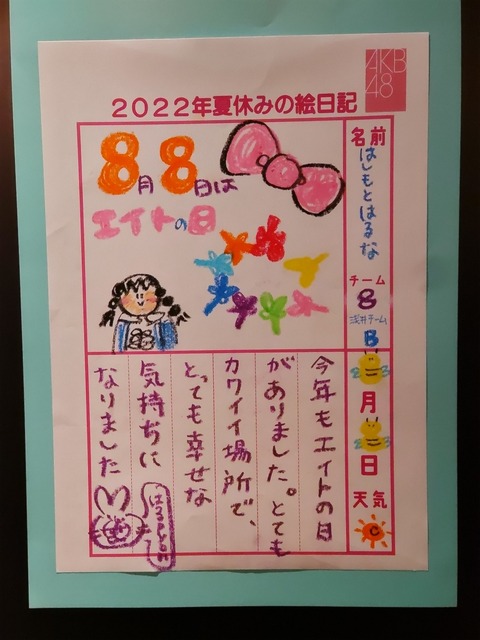 AKB
48
2022年夏休みの絵日記
8月8日は
エイトの日
名前
はしもとはるな
チーム
8
浅井チーム
B
月
日
天気
今年もエイトの日
がありました。とても
カワイイ場所で、
とっても幸せな
気持ちに
なりました